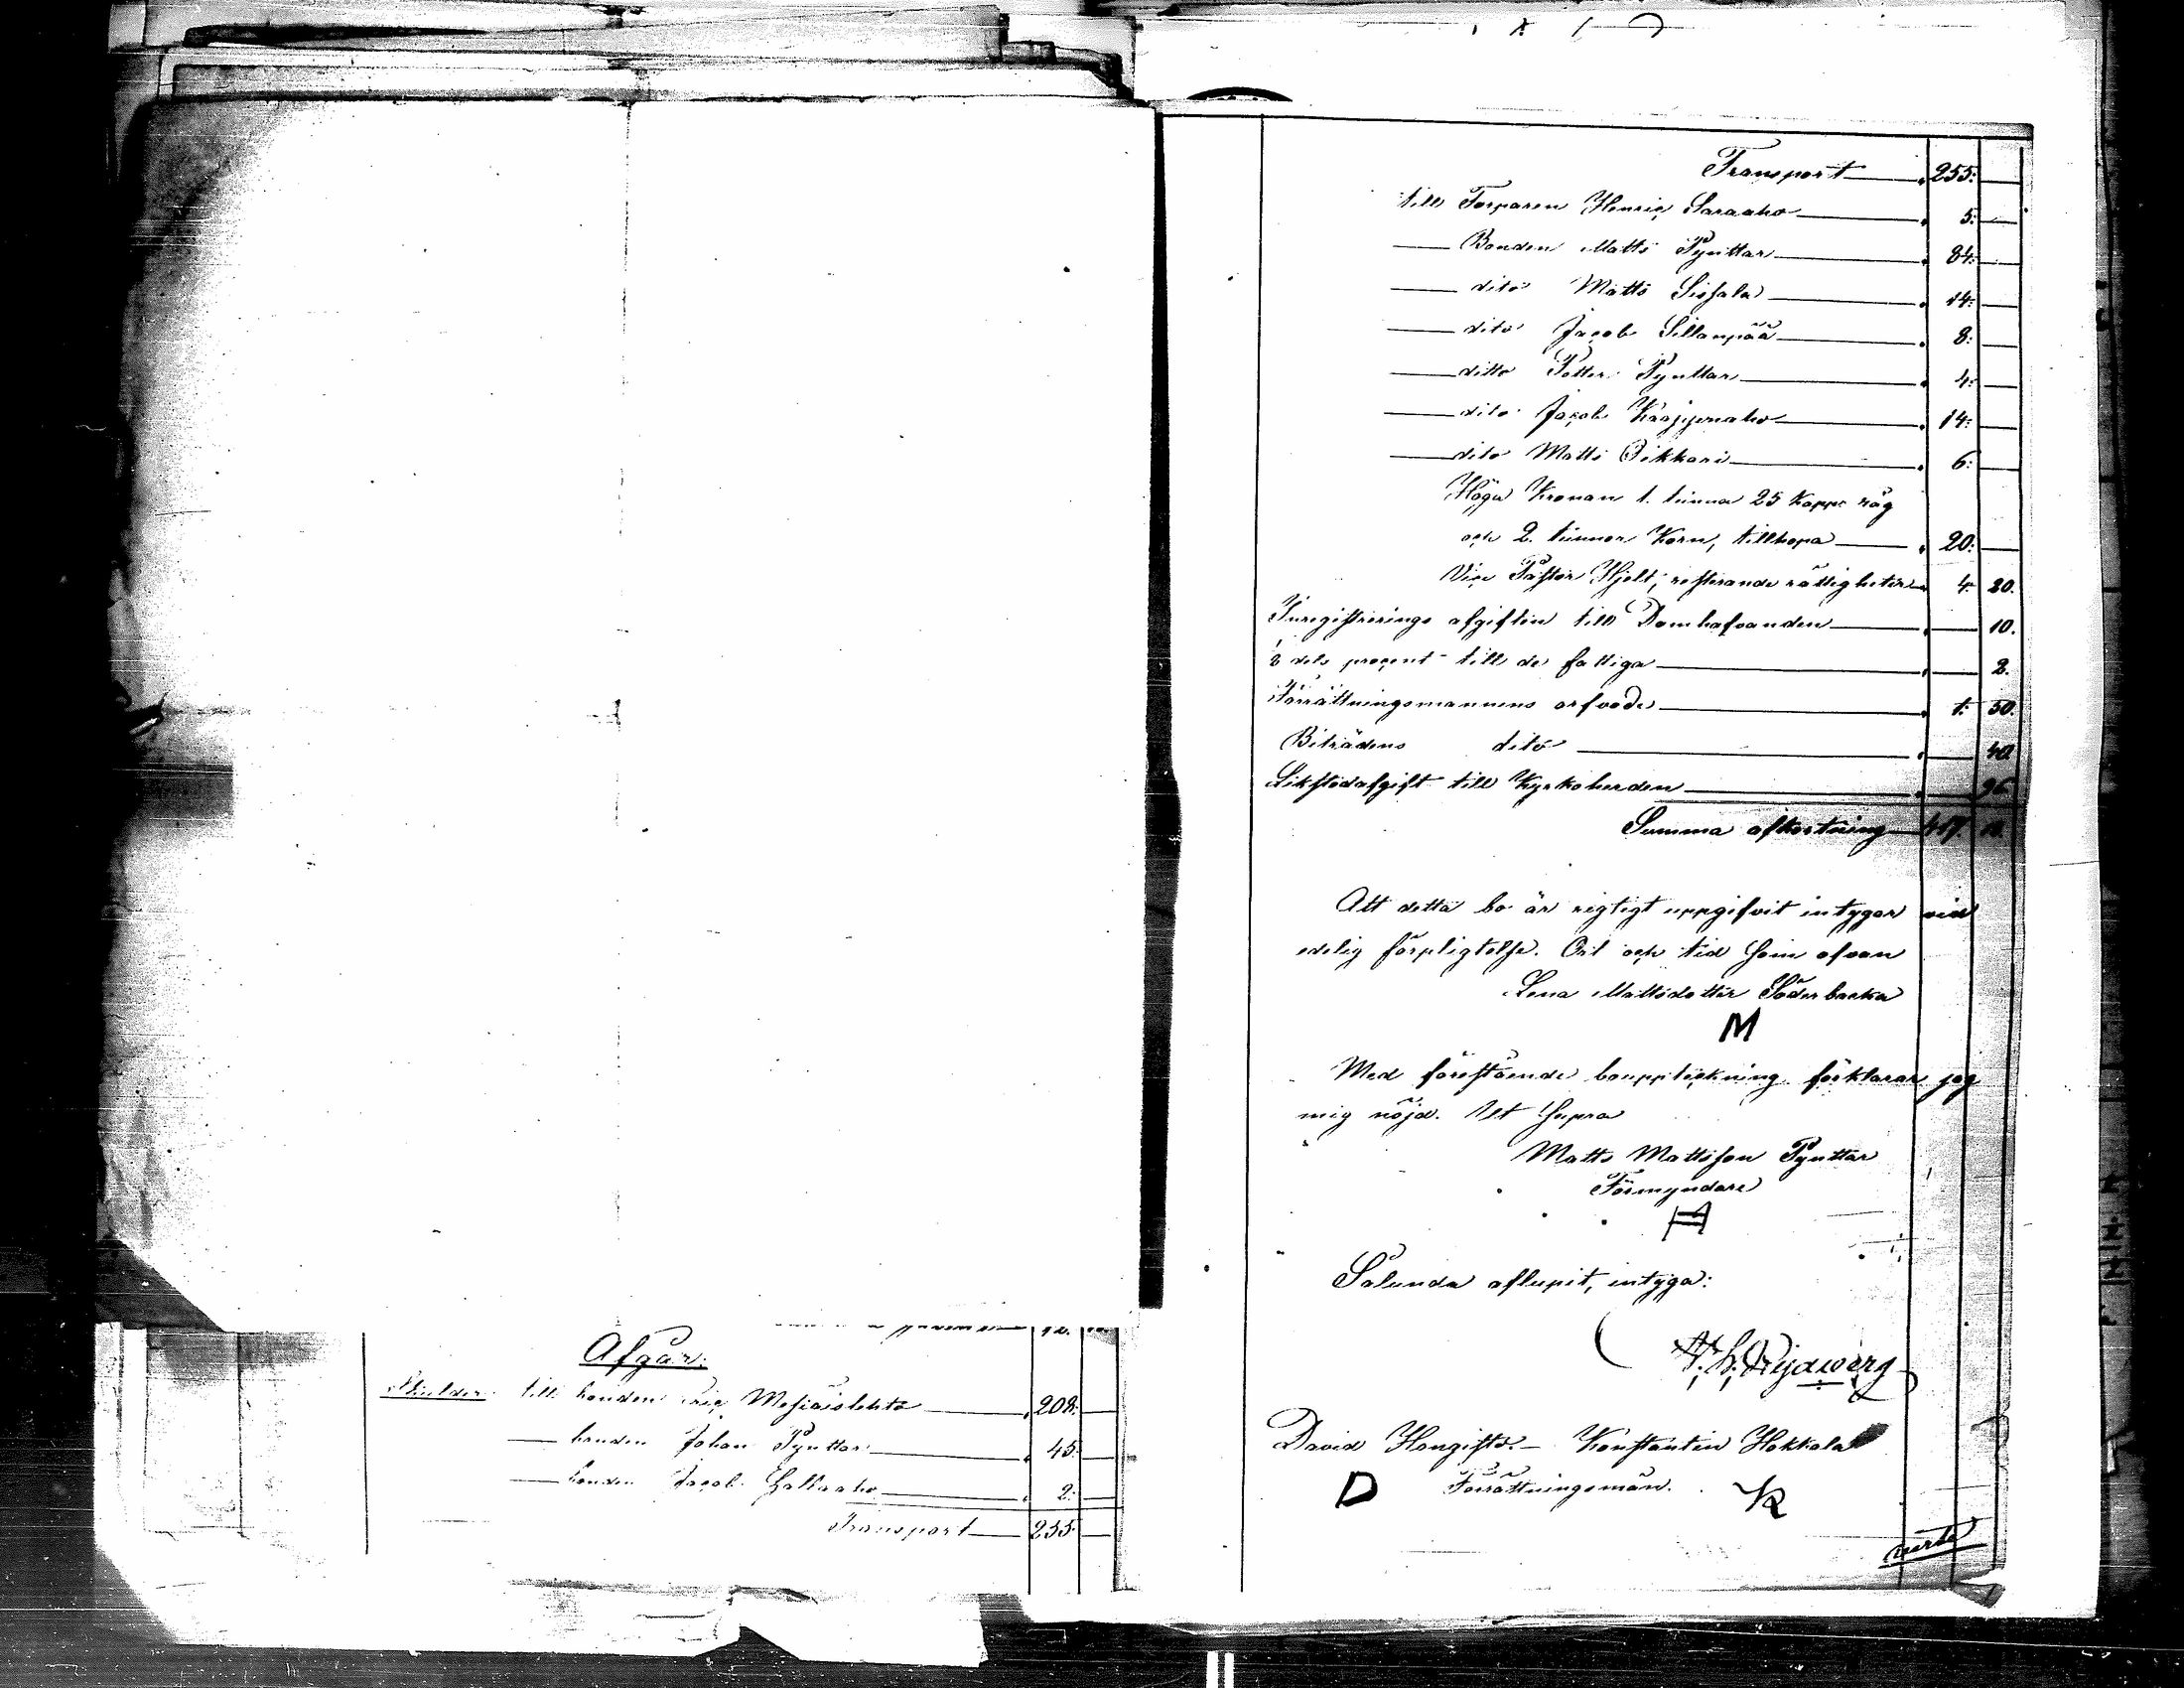 Afgår:
Skulder till bonden Eric Mesiäislehto 208:
bonden Johan Pynttar 45:
bonden Jacob 2:
Transport 255:
Transport 255:
till Torparen Henric Saraaho 5:
Bonden Matts Pynttar 84:
dito Matts Sissala 14:
dito Jacob Sillanpää 8:
ditto Petter Pynttar 4:
dito Jacob 14:
dito Matts Pikkari 6:
Höga Kronan 1. tunna 25 Kappr råg
och 2. tunnor Korn, tillhopa 20:
Vice Pastor Hjelt, resterande rättigheter 4. 20.
Inregistrerings afgiften till Domhafvanden 10.
1/8 dels procent till de fattiga 2.
Förrättningsmannens arfvode 1: 50.
Biträdens dito 40.
Likstodsafgift till Kyrkoherden 96.
Summa afkortning 417.
Att detta bo är rigtigt uppgifvit intygar vid
edelig förpligtelse. Ort och tid som ofvan
Lena Mattsdotter Söderbacka
M
Med förestående bouppteckning förklarar jag
mig nöjd. Ut Supra
Matts Mattsson Pynttar
Förmyndare
Sålunda aflupit, intyga:
David Hongisto. Konstantin Hokkala
D Förrättningsmän. K
verte